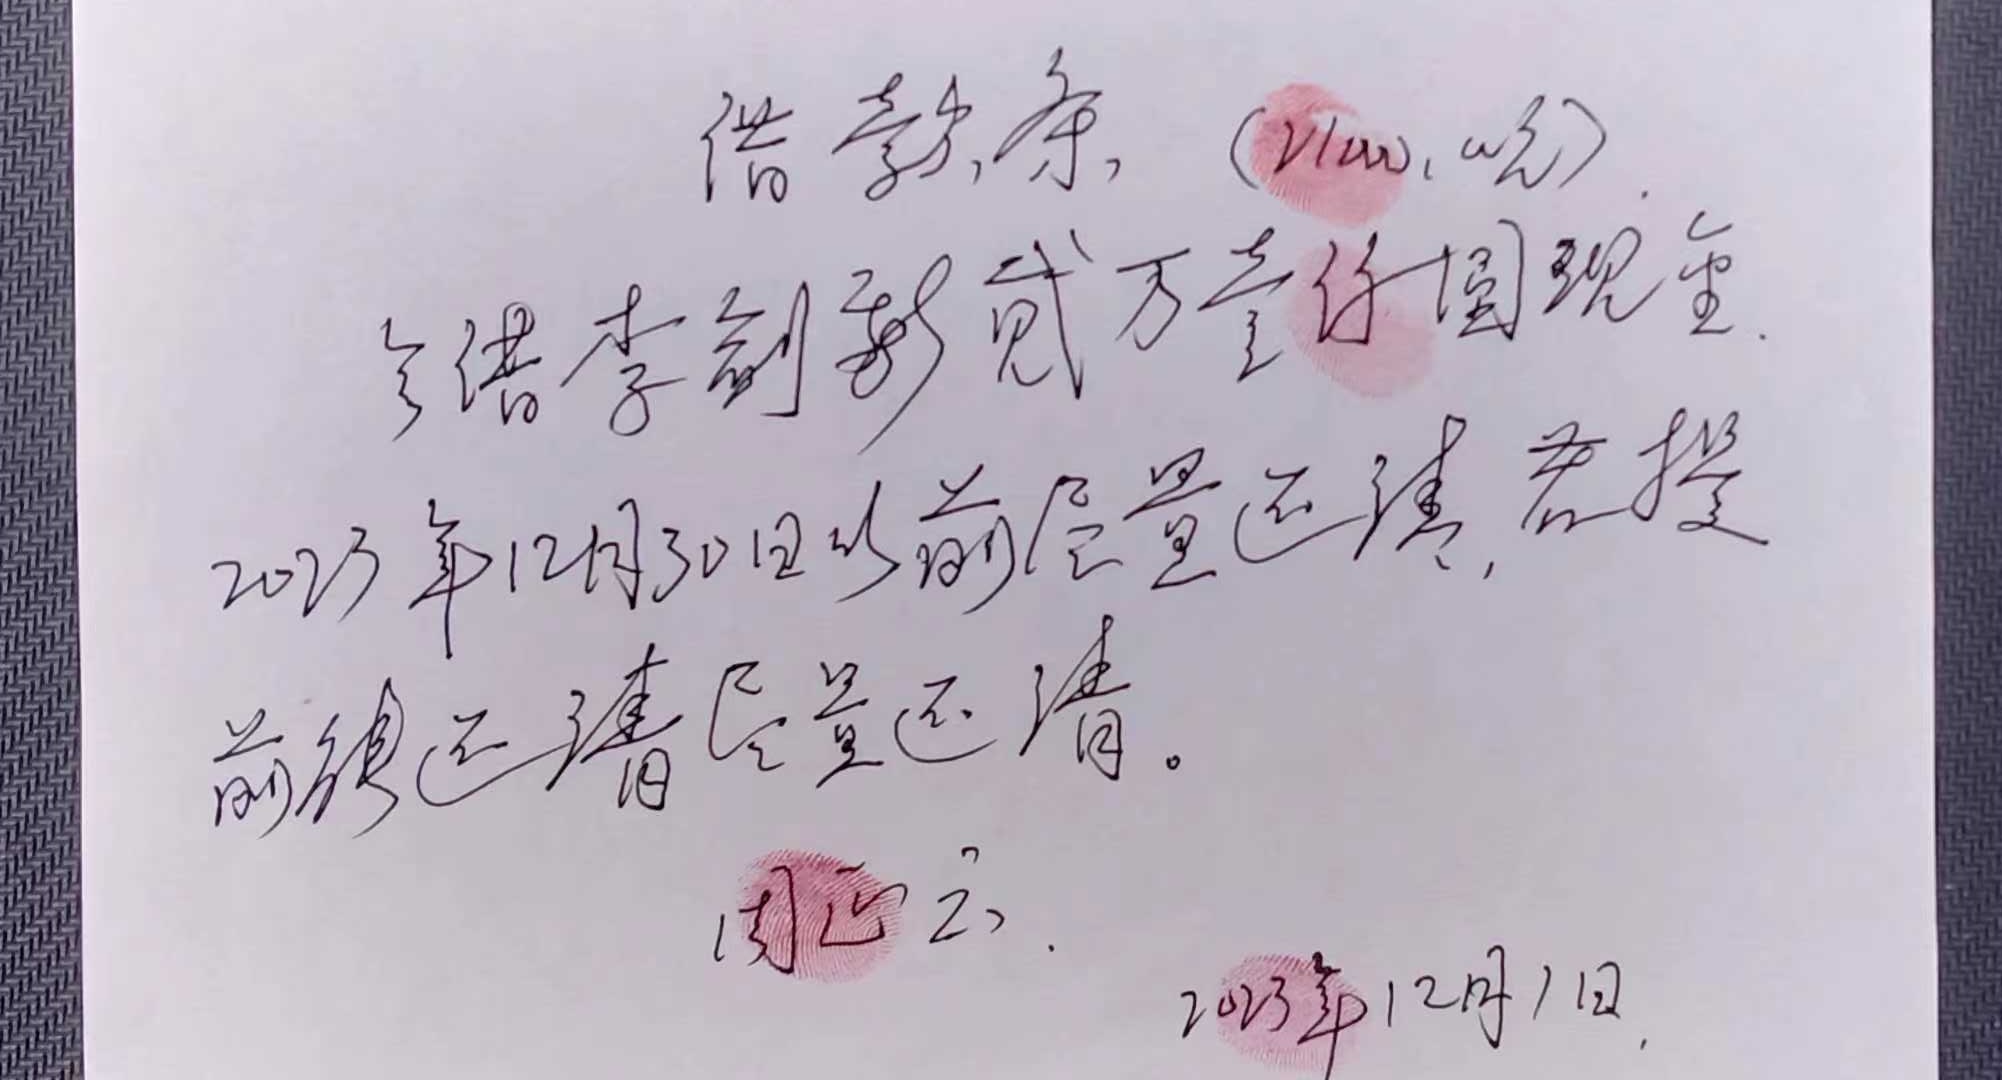 借款条 (21000.00元).
今借李剑新贰万壹仟圆现金.
2023年12月30日以前尽量还清,若提
前能还清尽量还清。
周正云.
2023年12月1日.